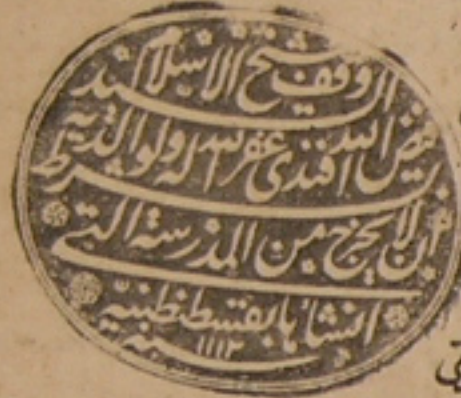 وقف شيخ الاسلام السيد
فيض الله افندى غفر الله له ولوالديه
بشرط ان لا يخرج من المدرسة التى
انشأها بقسطنطنيه
سنه ١١١٢